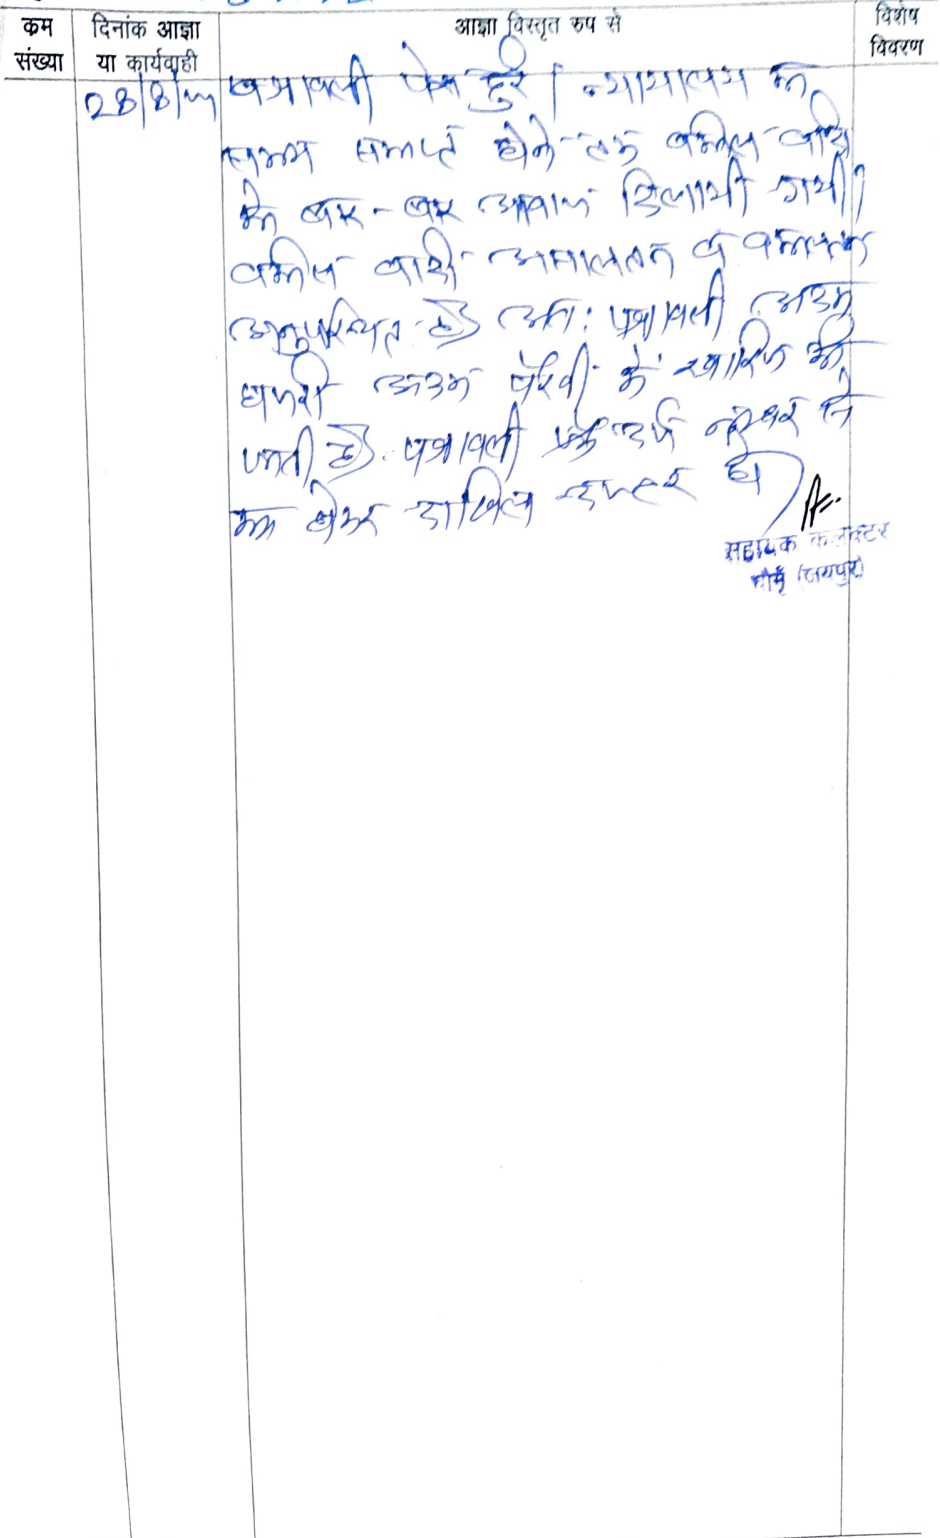 क्रम संख्या
दिनांक आज्ञा या कार्यवाही
आज्ञा विस्तृत रुप से
विशेष विवरण
28/8/
पत्रावली पेश हुई। न्यायालय का
समय समाप्त होने तक वकील वादी
को बार-बार आवाज दिलायी गयी।
वकील वादी असालतन व वकालतन
अनुपस्थित है अतः पत्रावली अदम
हाजरी अदम पैरवी में खारिज की
जाती है। पत्रावली दर्ज नम्बर से
कम होकर दाखिल दफ्तर हो
सहायक कलक्टर
चौमूँ (जयपुर)